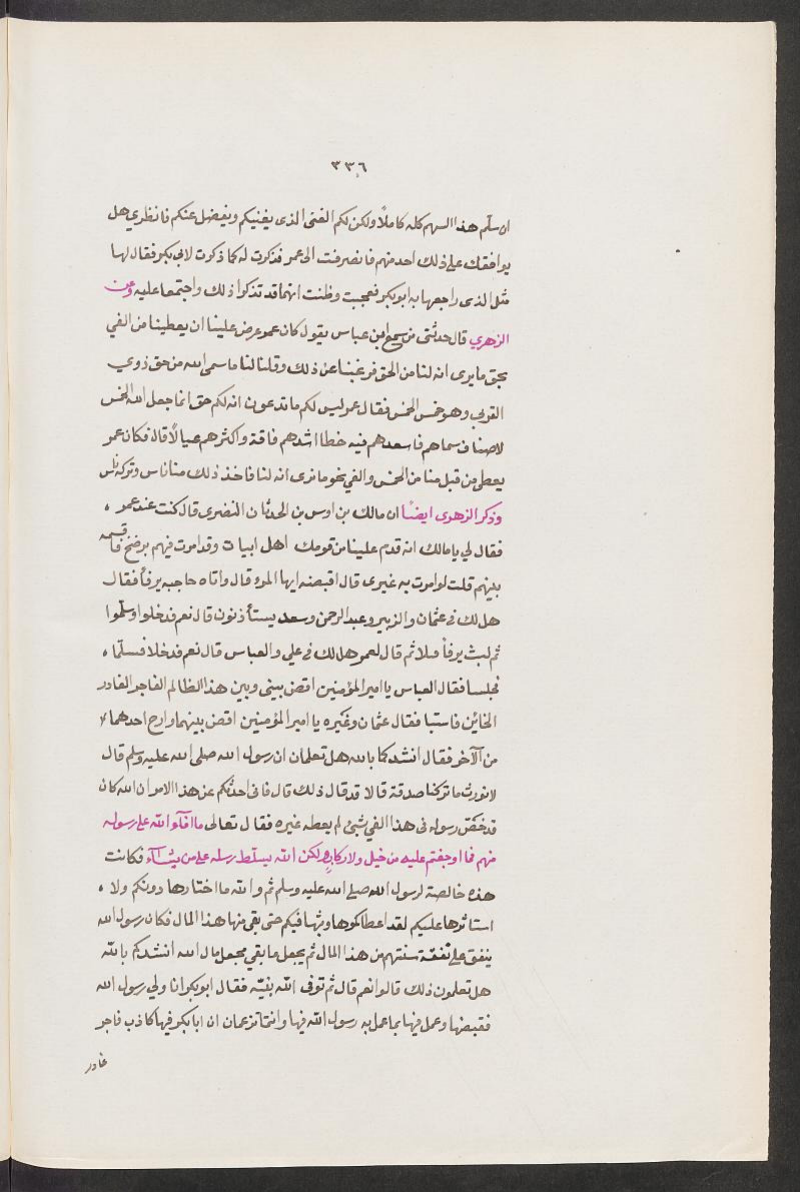 ٣٣٦
ان سلم هذا السهم كله كاملاً ولكن لكم الغنى الذى يغنيكم ويفضل عنكم فانظري هل
يوافقك على ذلك احد منهم فانصرفت الى عمر فذكرت له كما ذكرت لابى بكر فقال لها
مثل الذى راجعها به ابوبكر فعجبت وظنت انهما قد تذكرا ذلك واجتمعا عليه وعن
الزهري قال حدثنى من سمع ابن عباس يقول كان عمر عرض علينا ان يعطينا من الفي
بحق ما يرى انه لنا من الحق فرغبنا عن ذلك وقلنا لنا ما سمى الله من حق ذوي
القربى وهو خمس الخمس فقال عمر ليس لكم ما تدعون انه لكم حق انما جعل الله الخمس
لاصناف سماهم فاسعدهم فيه خطا اشدهم فاقة واكثرهم عيالاً قال فكان عمر
يعطى من قبل منا من الخمس والفي نحو ما نرى انه لنا فاخذ ذلك منا ناس وتركه ناس
وذكر الزهرى ايضاً ان مالك بن اوس بن الحدثان النضرى قال كنت عند عمر
فقال لي يا مالك انه قدم علينا من قومك اهل ابيات وقد امرت فيهم برضخ فاقسمه
بينهم قلت لو امرت به غيرى قال اقبضه ايها المرء قال واتاه حاجبه يرفأ فقال
هل لك فى عثمان والزبير وعبد الرحمن وسعد يستأذنون قال نعم فدخلوا وسلّموا
ثم لبث يرفأ قليلا ثم قال لعمر هل لك فى علي والعباس قال نعم فدخلا فسلّما
فجلسا فقال العباس يا امير المؤمنين اقض بينى وبين هذا الظالم الفاجر الغادر
الخائن فاستبا فقال عثمان وغيره يا امير المؤمنين اقض بينهما وارح احدهما
من الآخر فقال انشدكما بالله هل تعلمان ان رسول الله صلى الله عليه وسلم قال
لا نورث ما تركنا صدقة قالا قد قال ذلك قال فانى احدثكم عن هذا الامر ان الله كان
قد خصّ رسوله فى هذا الفي بشئ لم يعطه غيره فقال تعالى ما افآء الله على رسوله
منهم فما اوجفتم عليه من خيل ولا ركاب ولكن الله يسلّط رسله على من يشآء فكانت
هذه خالصة لرسول الله صلى الله عليه وسلم ثم والله ما اختارها دونكم ولا
استاثرها عليكم لقد اعطاكموها وبثها فيكم حتى بقي منها هذا المال فكان رسول الله
ينفق على نفقة سنتهم من هذا المال ثم يجعل ما بقي مجعل مال الله انشدكم بالله
هل تعلمون ذلك قالوا نعم قال ثم توفى الله نبيّه فقال ابوبكر انا ولي رسول الله
فقبضها وعمل فيها بما عمل به رسول الله فيها وانتما تزعمان ان ابابكر فيها كاذب فاجر
غادر